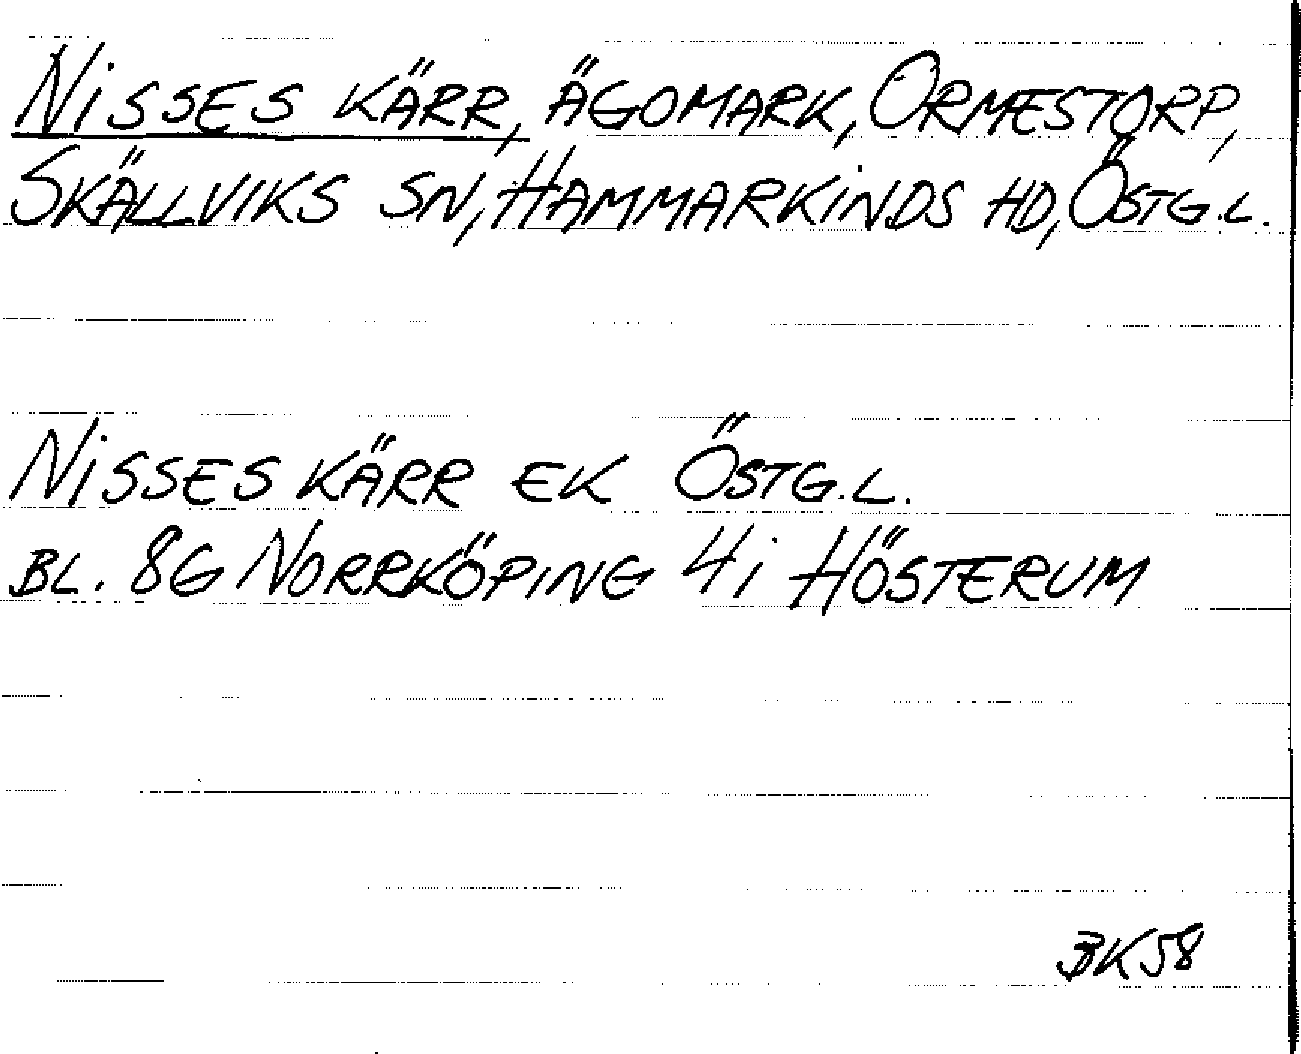 NISSES KÄRR, ÄGOMARK, ORMESTORP,
SKÄLLVIKS SN, HAMMARKINDS HD, ÖSTG.L.
NISSES KÄRR EK ÖSTG.L.
BL. 8G NORRKÖPING 4i HÖSTERUM
BK58